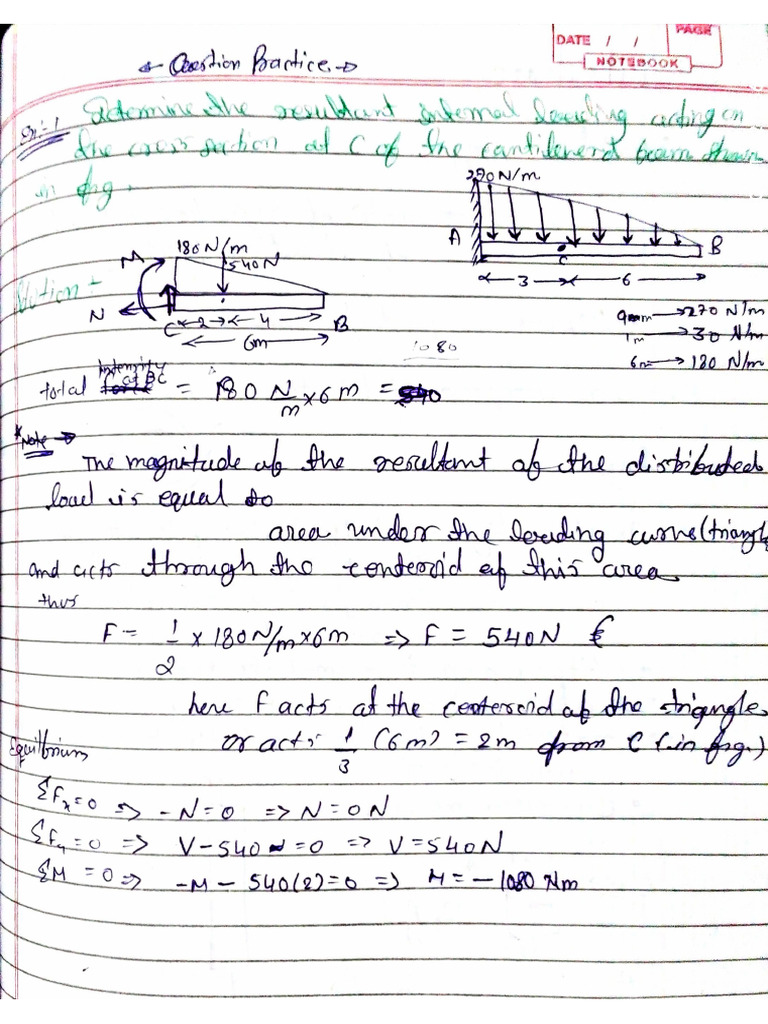 PAGE
DATE / /
NOTEBOOK
← Question Practice →
Ex:-1 Determine the resultant internal loading acting on
the cross section at C of the cantilevered beam shown
in fig.
270 N/m
A B
C
3 6
180 N/m
540 N
M
N
C 2 4 B
6m
Solution :-
9m → 270 N/m
1m → 30 N/m
6m → 180 N/m
1080
total Intensity at BC = 180 N/m × 6m =
*Note →
The magnitude of the resultant of the distributed
load is equal to
area under the loading curve (triangle
and acts through the centeroid of this area
thus
F = 1/2 × 180N/m × 6m => F = 540N
here F acts at the centeroid of the triangle
or acts 1/3 (6m) = 2m from C (in fig.)
Equilibrium
ΣFx=0 => -N=0 => N=0N
ΣFy=0 => V-540=0 => V=540N
ΣM=0 => -M-540(2)=0 => M=-1080 Nm